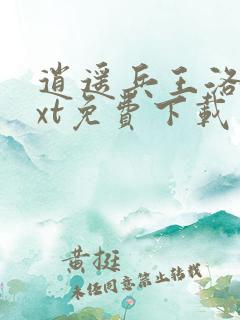 逍遥兵王洛
xt免費下載
黄挺
未经同意禁止转载